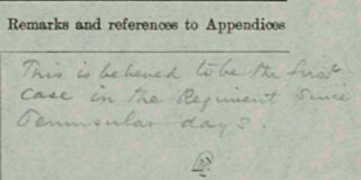 Remarks and references to Appendices
This is believed to be the first
case in the Regiment since
Peninsular days.